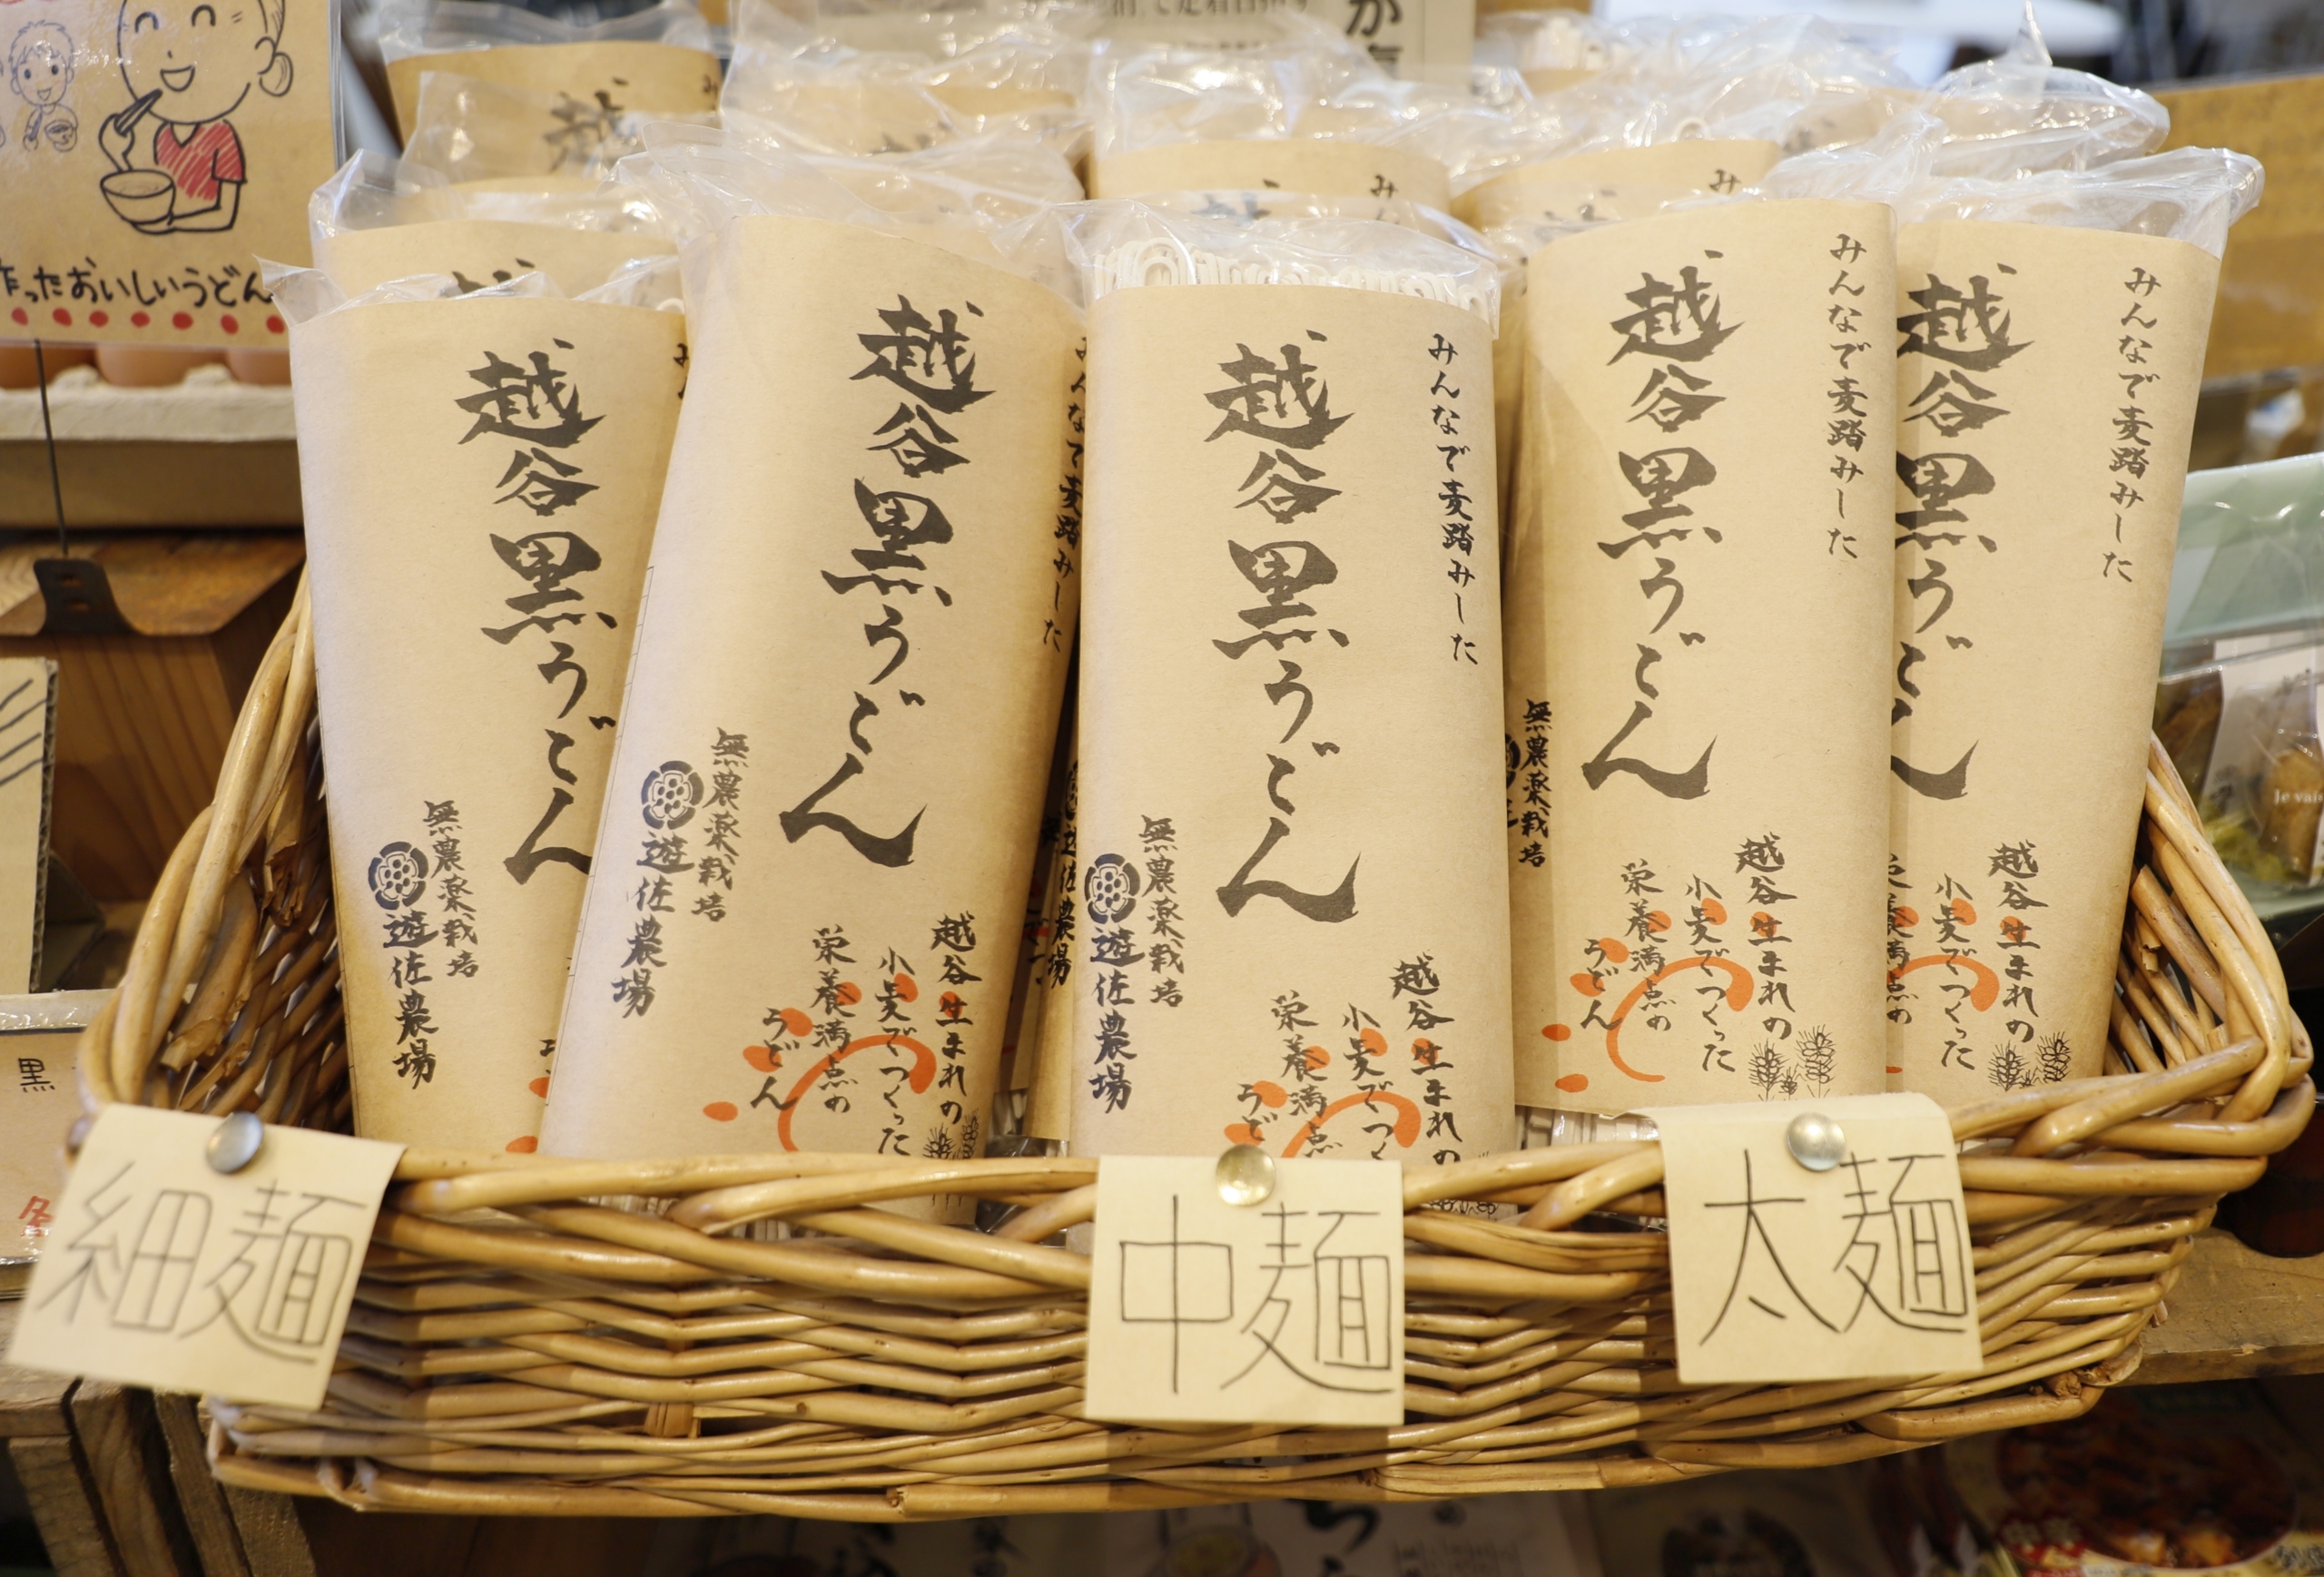 作ったおいしいうどん
越谷黒うどん
無農薬栽培
遊佐農場
みんなで麦踏みした
越谷黒うどん
無農薬栽培
遊佐農場
越谷生まれの
小麦でつくった
栄養満点の
うどん
みんなで麦踏みした
越谷黒うどん
無農薬栽培
遊佐農場
越谷生まれの
小麦でつく
栄養満点
うど
みんなで麦踏みした
越谷黒うどん
無農薬栽培
越谷生まれの
小麦でつくった
栄養満点の
うどん
みんなで麦踏みした
越谷黒うどん
越谷生まれの
小麦でつくった
栄養満点の
細麺
中麺
太麺
黒
Je vais